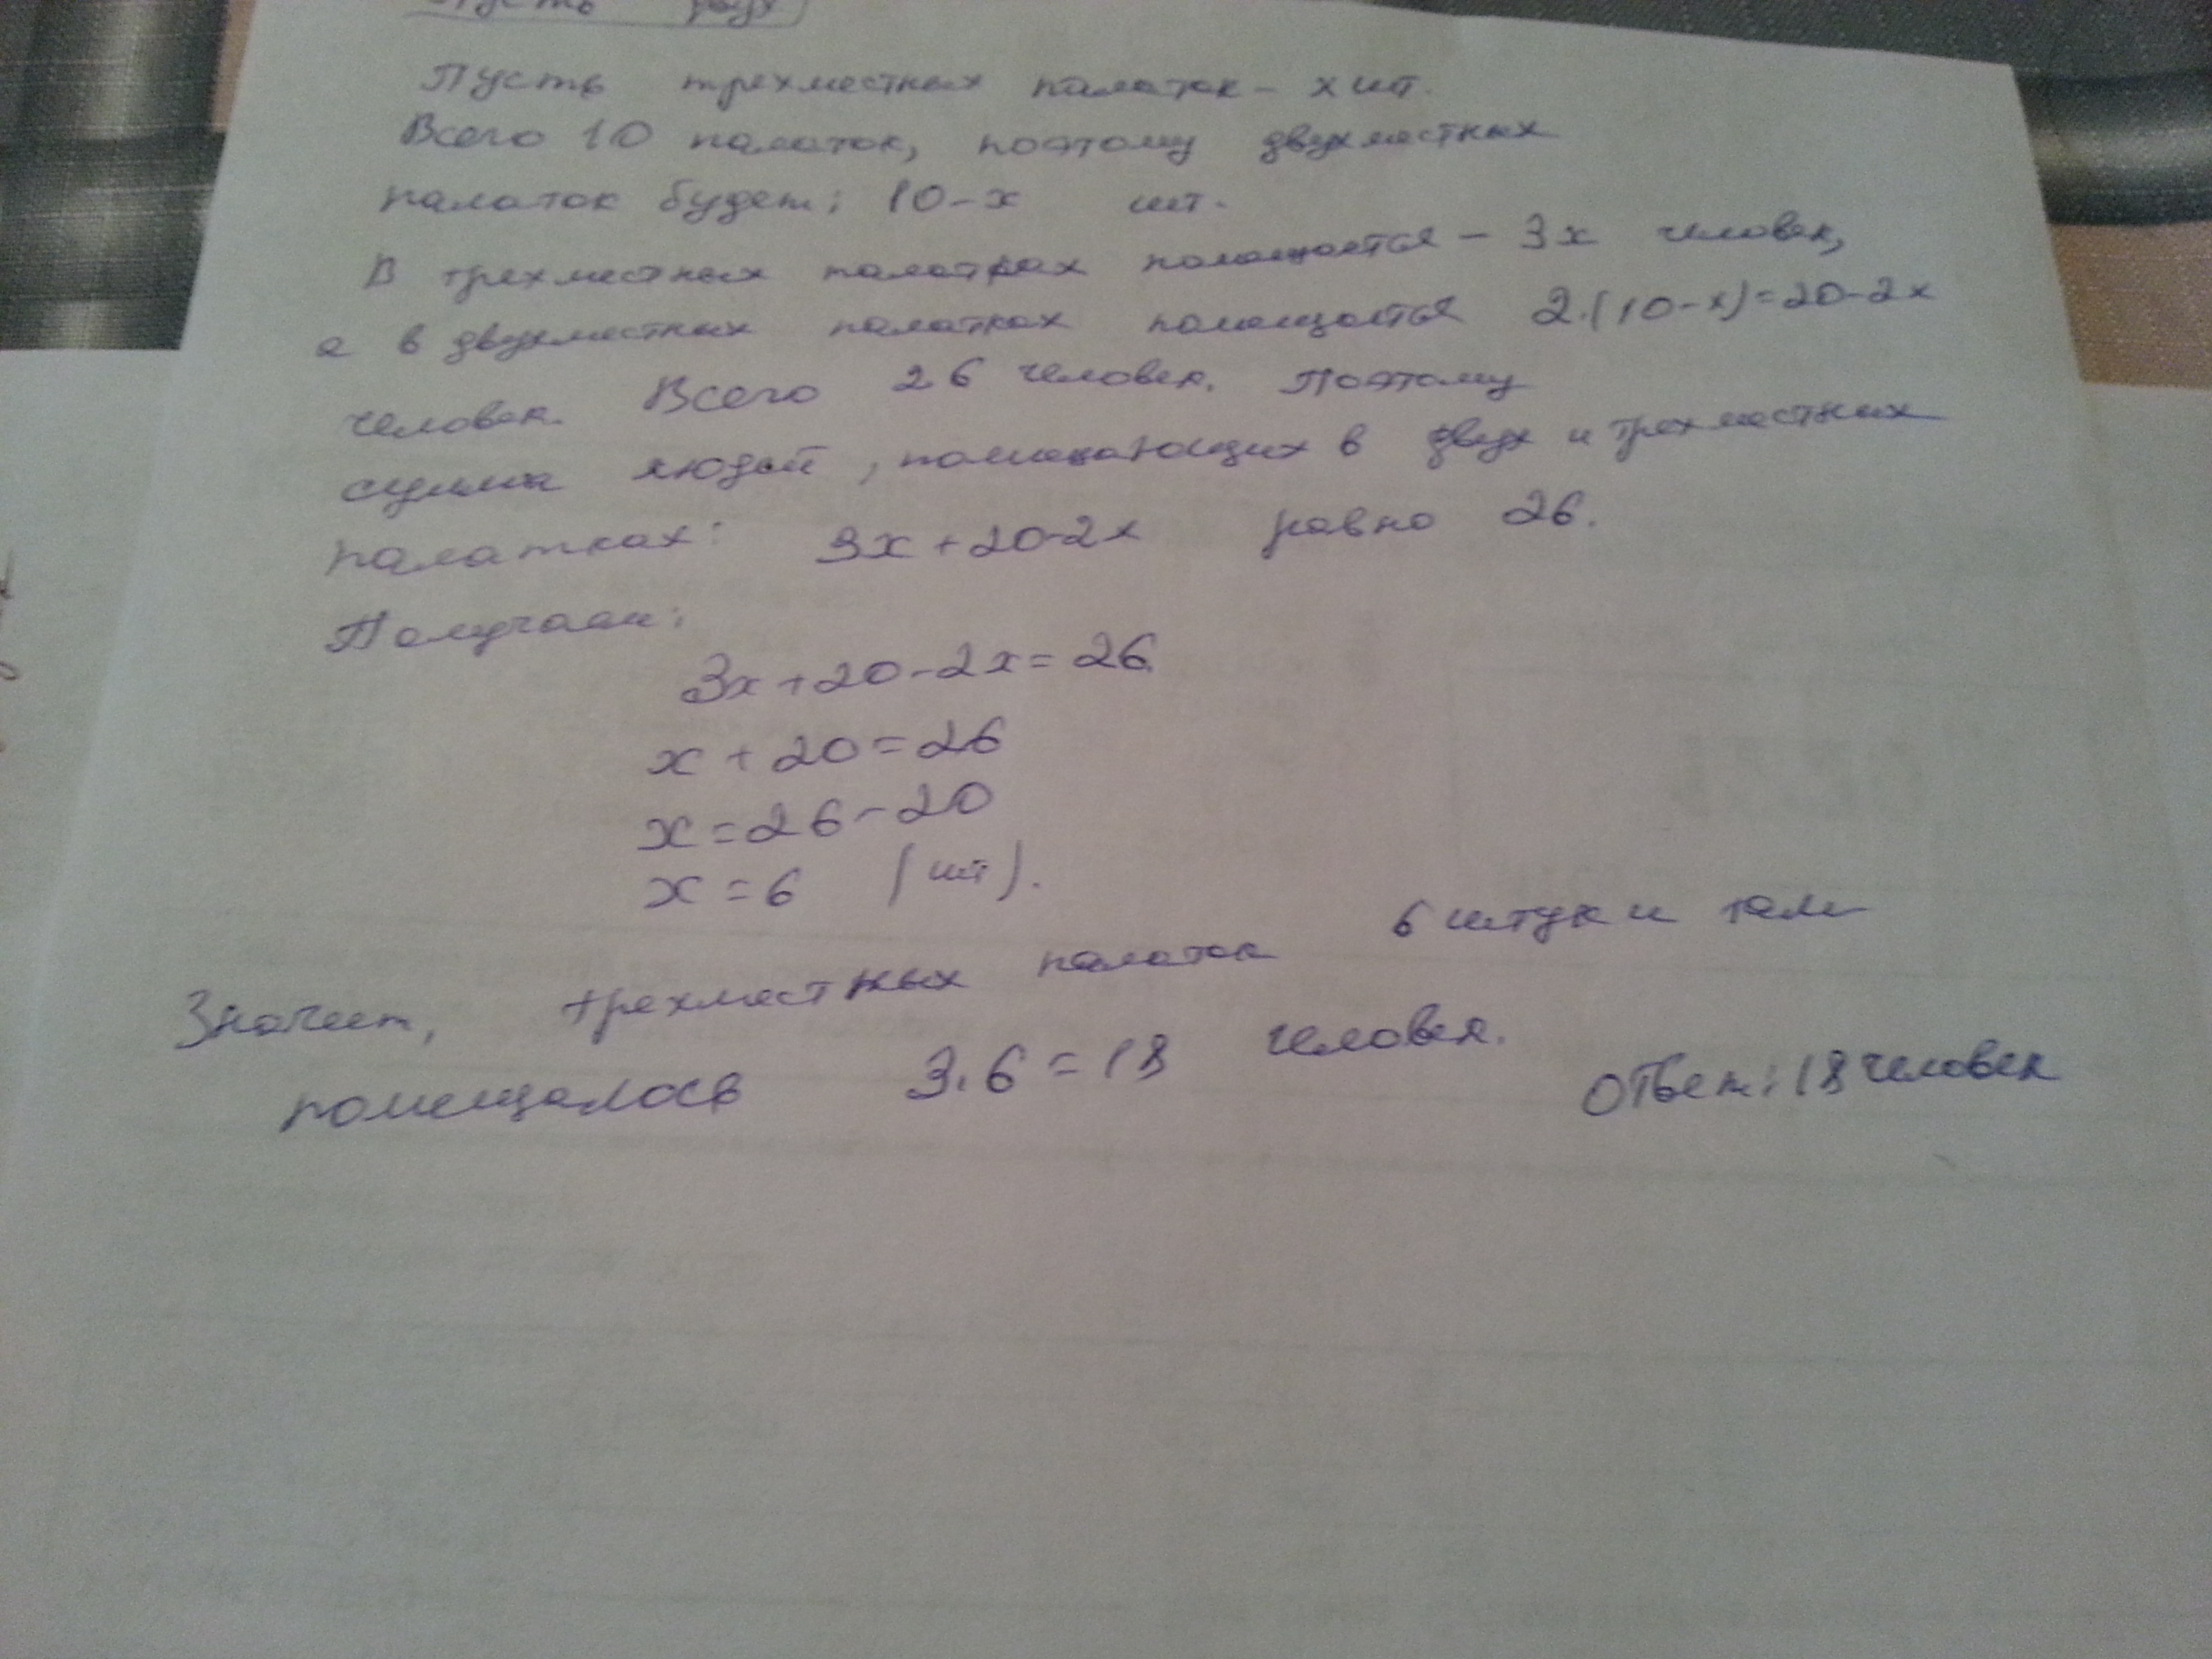 Пусть двух
Пусть трехместных палаток - х шт.
Всего 10 палаток, поэтому двухместных
палаток будет: 10-х шт.
В трехместных палатках помещается - 3х человек,
а в двухместных палатках помещается 2·(10-х)=20-2х
человек. Всего 26 человек. Поэтому
сумма людей, помещающих в двух и трехместных
палатках: 3х+20-2х равно 26.
Получаем:
3х+20-2х=26
х+20=26
х=26-20
х=6 (шт).
Значит, трехместных палаток 6 штук и там
помещалось 3·6=18 человек.
Ответ: 18 человек